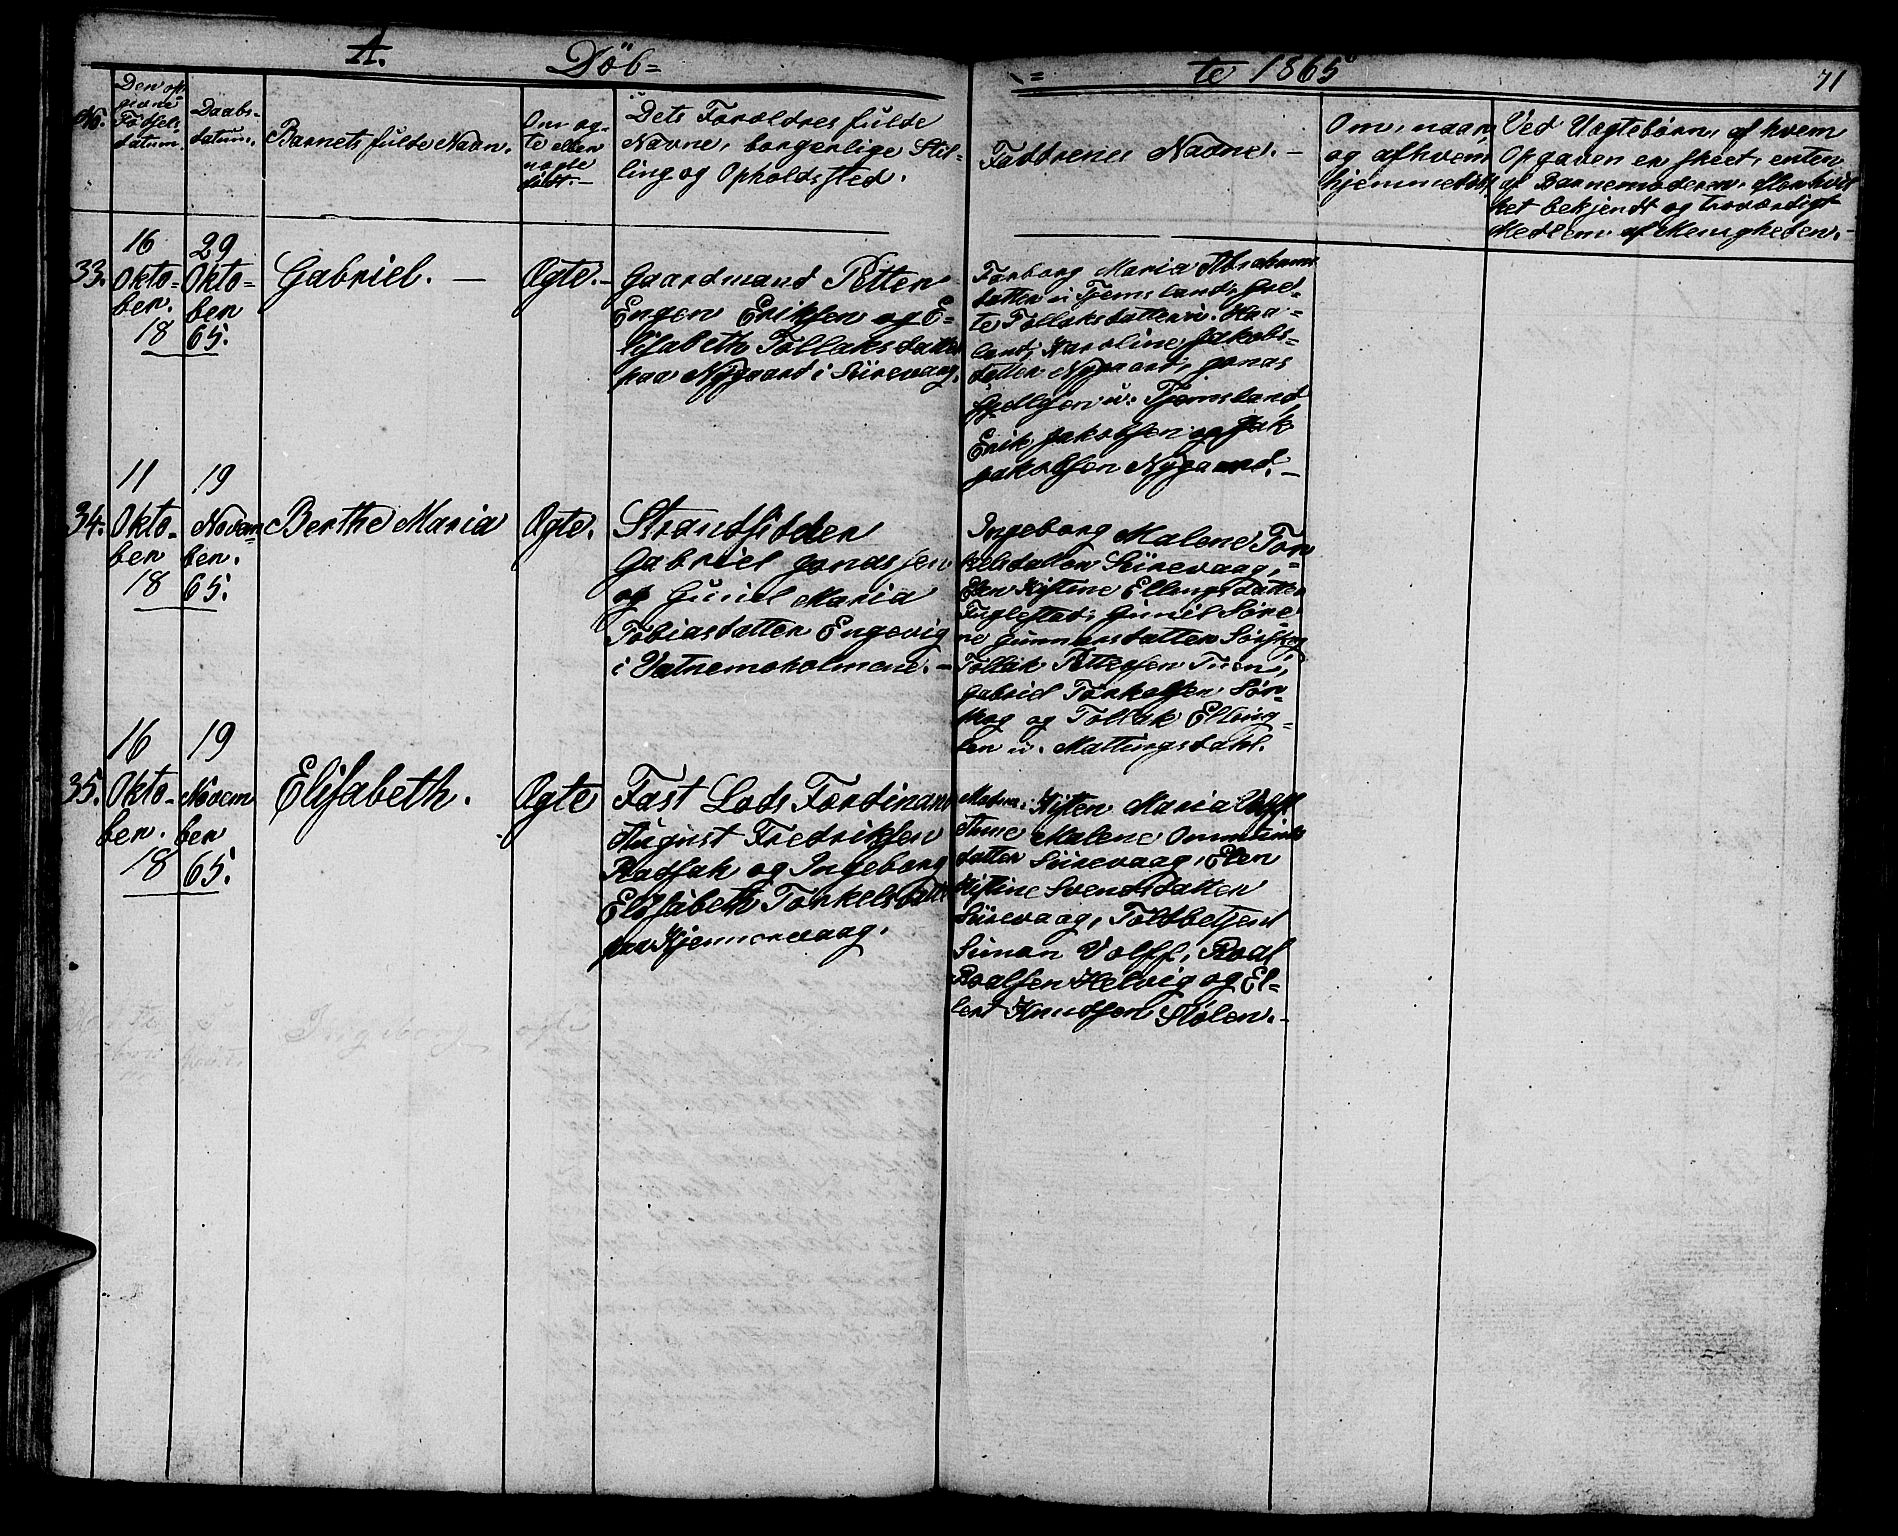 A.
Döb=
=te 1865
71
No.
Den op-
givne
Fødsels-
datum.
Daabs-
datum.
Barnets fulde Navn.
Om æg-
te eller
uægte
født.—
Dets Forældres fulde
Navne, borgerlige Stil-
ling og Opholdssted.
Faddrenes Navne.—
Om, naar
og af hvem
hjemmedøbt
Ved Uægtebørn, af hvem
Opgaven er skeet, enten
af Barnemoderen, eller hvil
ket bekjendt og troværdigt
Medlem af Menigheden.—
33.
16
Okto-
ber.
18
29
Okto-
ber
65.
Gabriel. —
Ægte.—
Gaardmand Petter
Enger Eriksen og E=
lisabeth Tollaksdatter
paa Nygaard i Sirevaag.
Torborg Maria Abrahams
datter u. Tjemsland,
te Tollaksdatter u. Haa-
land, Karoline Jakobs-
datter Nygaard, Jonas
u. Tjemsland,
Erik Jakobsen og Jak
Jakobsen Nygaard.—
34.
11
Okto-
ber
18
19
Novem
ber.
65.
Berthe Maria
Ægte.
Strandsidder
Gabriel Jonassen
og Guniel Maria
Tobiasdatter Engevig
i Vatnemoholmene.—
Ingeborg Malene Tor
kelsdatter Sirevaag,
Elen Kistine Ellingsdatter
Fuglestad, Guniel Søre
ne Gunnarsdatter Sørskog
Tollak Pettersen Tuen,
Gabriel Torkelsen Sør-
skog og Tollak Elling-
sen u. Mattingsdahl.
35.
16
Okto-
ber.
18
19
Novem
ber
65.
Elisabeth.
Ægte
Fast Lods Ferdinand
August Fredriksen
Radsak og Ingeborg
Elisabeth Torkelsdatter
paa Kjennorvaag.
Madm. Kisten Maria Volff
Anne Malene Ommunds
datter Sirevaag, Elen
Kistine Svendsdatter
Sirevaag, Toldbetjent
Simon Volff, Roal
Roalsen Helvig og El-
lert Knudsen Stølen.—
Ingeborg
ægte